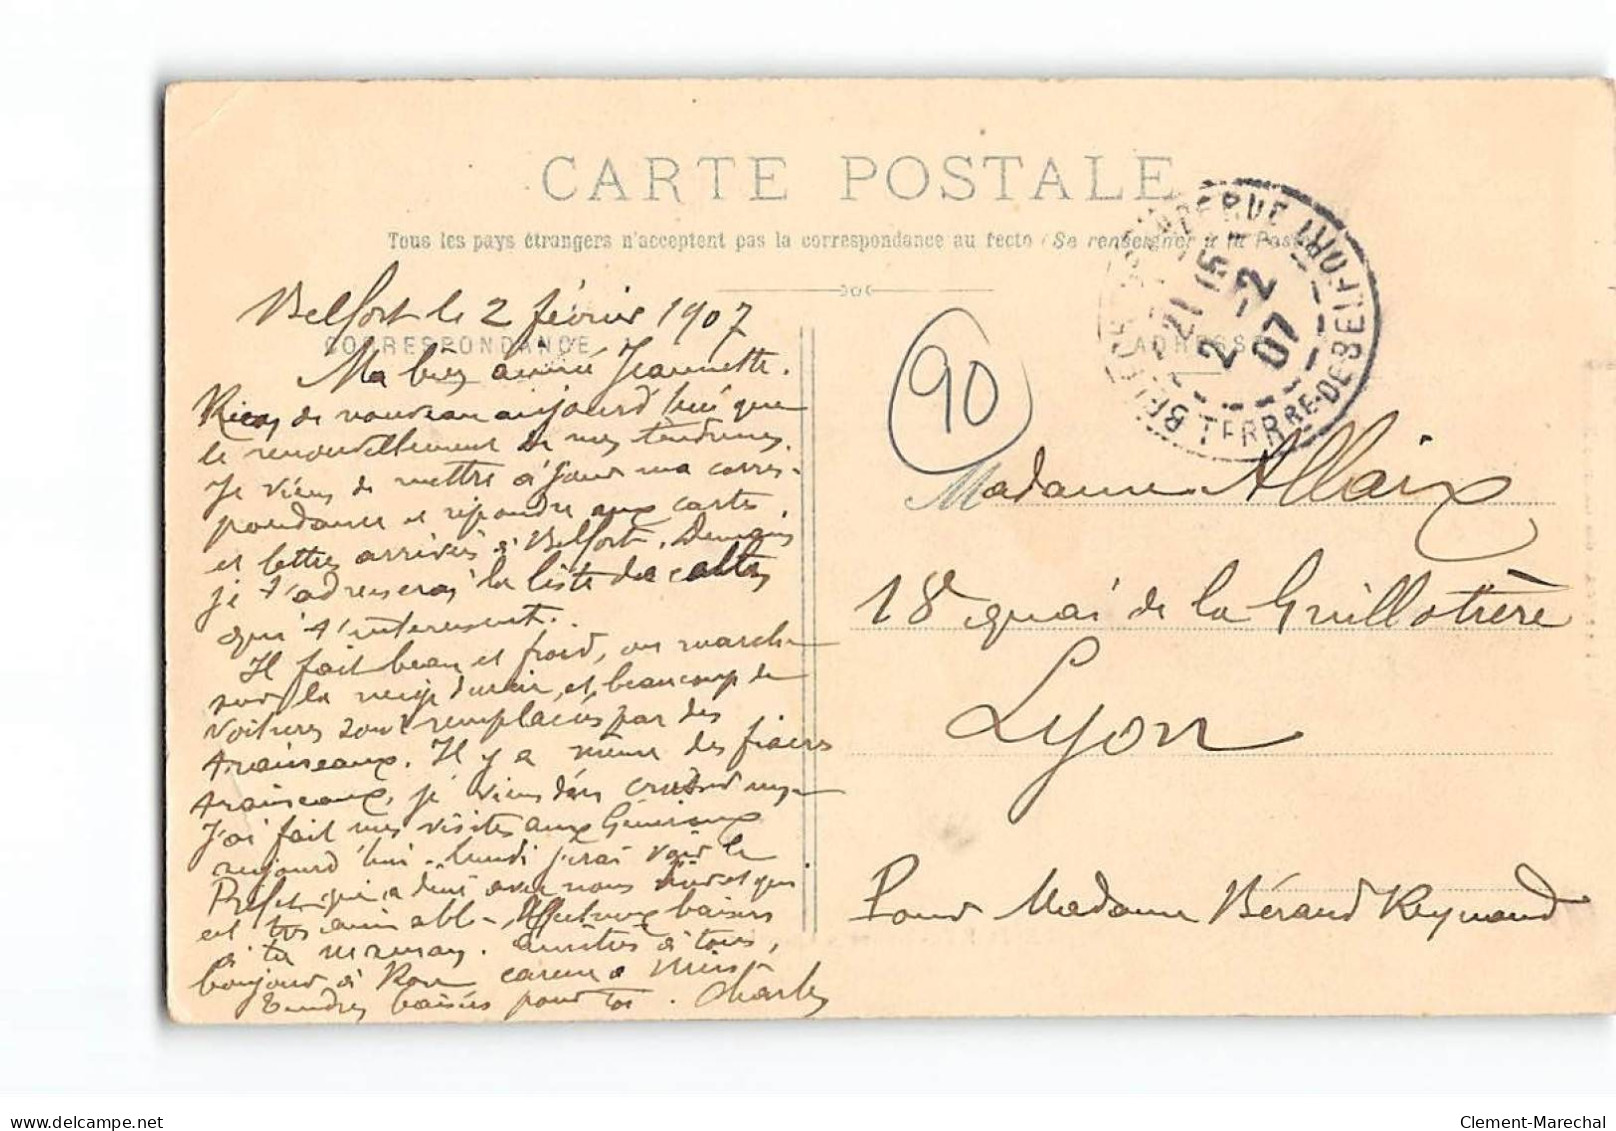 CARTE POSTALE
Tous les pays étrangers n'acceptent pas la correspondance au recto (Se renseigner à la Poste)
CORRESPONDANCE
ADRESSE
21 15
2 -2
07
TERRE-DE-BELFORT
90
Belfort le 2 février 1907
Ma bien aimée Jeannette.
Rien de nouveau aujourd'hui que
le renouvellement de mes tendresses.
Je viens de mettre à jour ma corres-
pondance et répondre aux cartes
et lettres arrivées à Belfort. Demain
je t'adresserai la liste de cartes
qui t'intéressent.
Il fait beau et froid, on marche
sur la neige durcie, et beaucoup de
voitures sont remplacées par des
traineaux. Il y a même des fiacres
traineaux, je viens d'en croiser un
J'ai fait mes visites aux Généraux
aujourd'hui - lundi j'irai voir le
Préfet qui a diné avec nous et qui
est très aimable - baisers
à ta maman. Amitiés à tous,
bonjour à caresse à Miss
Tendres baisers pour toi. Charles
Madame Allaix
18 quai de la Guillotière
Lyon
Pour Madame Bérard Reymond
Clement-Marechal
delcampe.net